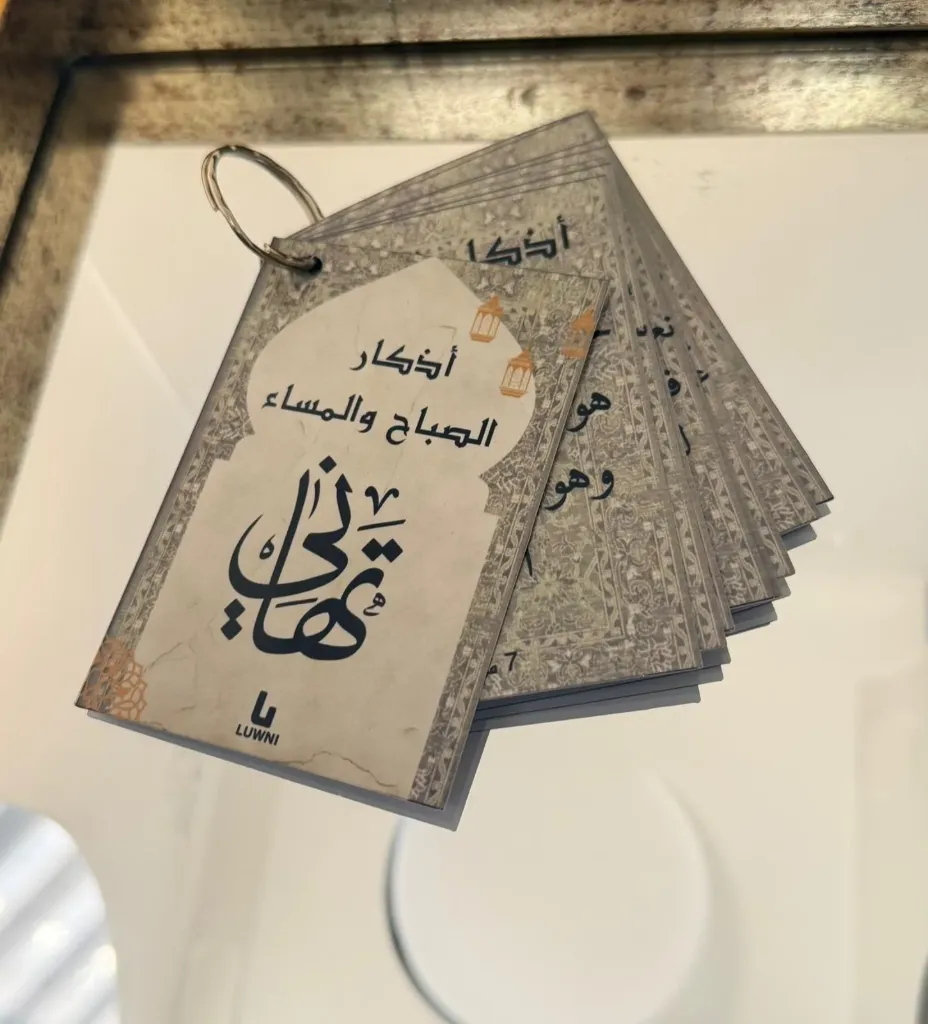 أذكار
الصباح والمساء
تهاني
LUWNI
هو
وهو
7